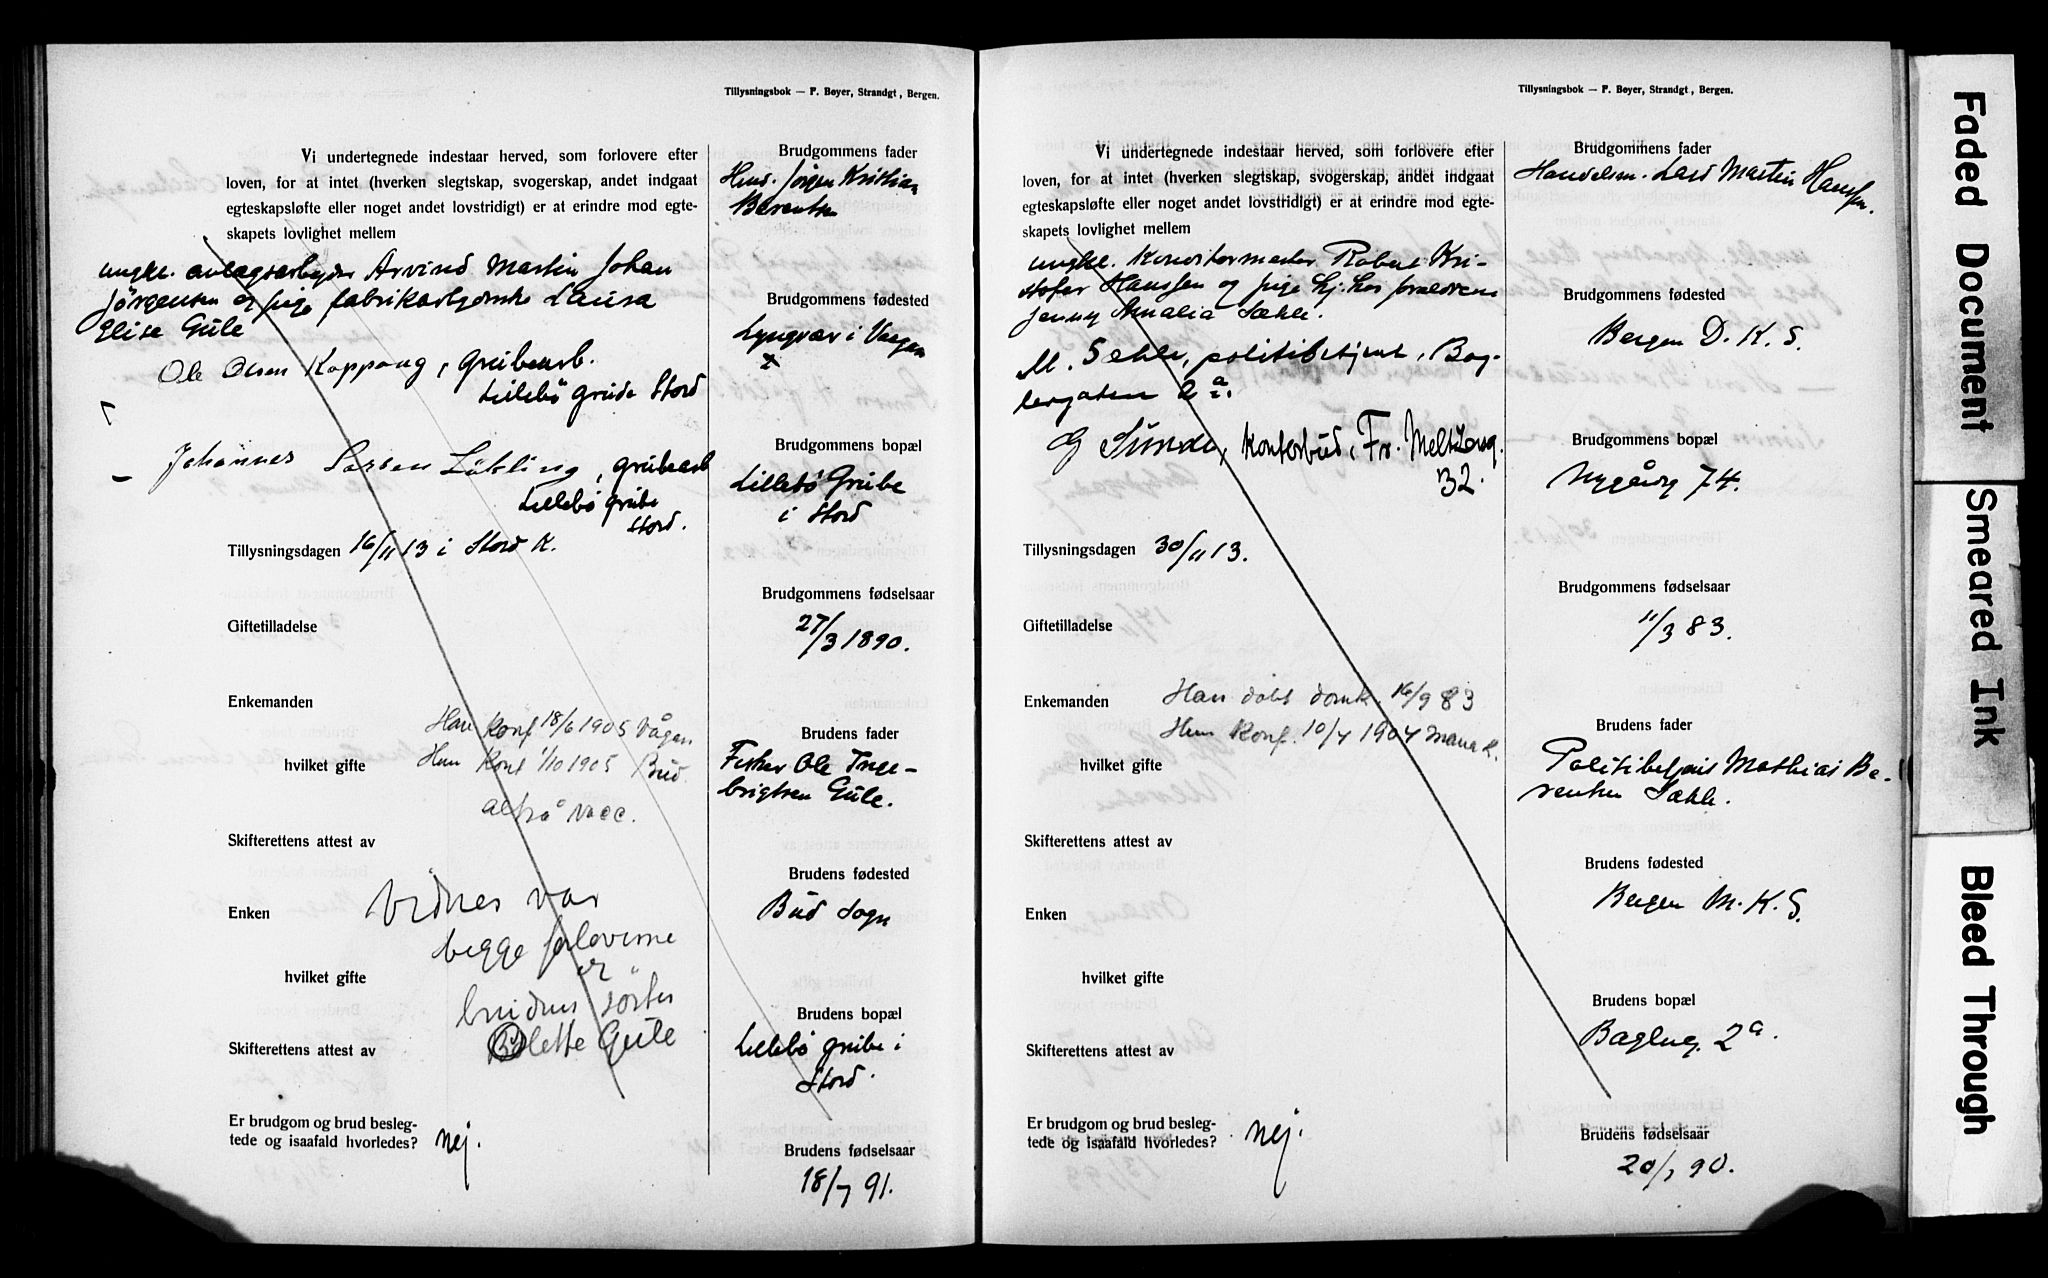 Tillysningsbok — F. Bøyer, Strandgt, Bergen.
Vi undertegnede indestaar herved, som forlovere efter
loven, for at intet (hverken slegtskap, svogerskap, andet indgaat
egteskapsløfte eller noget andet lovstridigt) er at erindre mod egte-
skapets lovlighet mellem
ungk. anlægsarbeyder Arvind Martin Johan
Jörgensen og pige fabrikarbejderske Lausa
Elise Gule
Ole Olsen Koppang, Grubearb.
Lillebö grube Stord
Johannes Larsen Lökling, grubearb
Lillebö grube
Stord.
Tillysningsdagen 16/11 13 i Stord K.
Giftetilladelse
Enkemanden
Han konf 18/6 1905 Vågan
hvilket gifte
Hun konf 1/10 1905 Bud.
altså vacc.
Skifterettens attest av
Vidner var
Enken
begge forloverne
og
hvilket gifte
brudens söster
Olette Gule
Skifterettens attest av
Er brudgom og brud besleg-
tede og isaafald hvorledes? Nej.
Brudgommens fader
Hmd. Jörgen Kristian
Berentsen
Brudgommens fødested
Lyngvær i Vaagan
Brudgommens bopæl
Lillebö Grube
i Stord
Brudgommens fødselsaar
27/3 1890.
Brudens fader
Fisker Ole Inge-
brigtsen Gule.
Brudens fødested
Bud Sogn
Brudens bopæl
Lillebö grube i
Stord.
Brudens fødselsaar
18/7 91.
Tillysningsbok — F. Bøyer, Strandgt, Bergen.
Vi undertegnede indestaar herved, som forlovere efter
loven, for at intet (hverken slegtskap, svogerskap, andet indgaat
egteskapsløfte eller noget andet lovstridigt) er at erindre mod egte-
skapets lovlighet mellem
ungk. Robert Kri-
stofer Hanssen og pige hj. hos forældrene
Jenny Amalia Sæhle.
M. Sæhle, politibetjent, Bag-
lergaten 2a.
G Sunde, kontorbud, Fr. Meltzersg.
32.
Tillysningsdagen 30/11 13.
Giftetilladelse
Enkemanden
Han döbt domk. 16/9 83
Hun Konf. 10/4 1904 Maria K.
hvilket gifte
Skifterettens attest av
Enken
hvilket gifte
Skifterettens attest av
Er brudgom og brud besleg-
tede og isaafald hvorledes? Nej.
Brudgommens fader
Handelsm. Lars Martin Hanssen.
Brudgommens fødested
Bergen D. K. S.
Brudgommens bopæl
Nygårdsg 74.
Brudgommens fødselsaar
11/3 83.
Brudens fader
Politibetjent Mathias Be-
rentsen Sæhle.
Brudens fødested
Bergen M. K. S.
Brudens bopæl
Baglerg. 2a.
Brudens fødselsaar
20/1 90.
Faded Document
Smeared Ink
Bleed Through